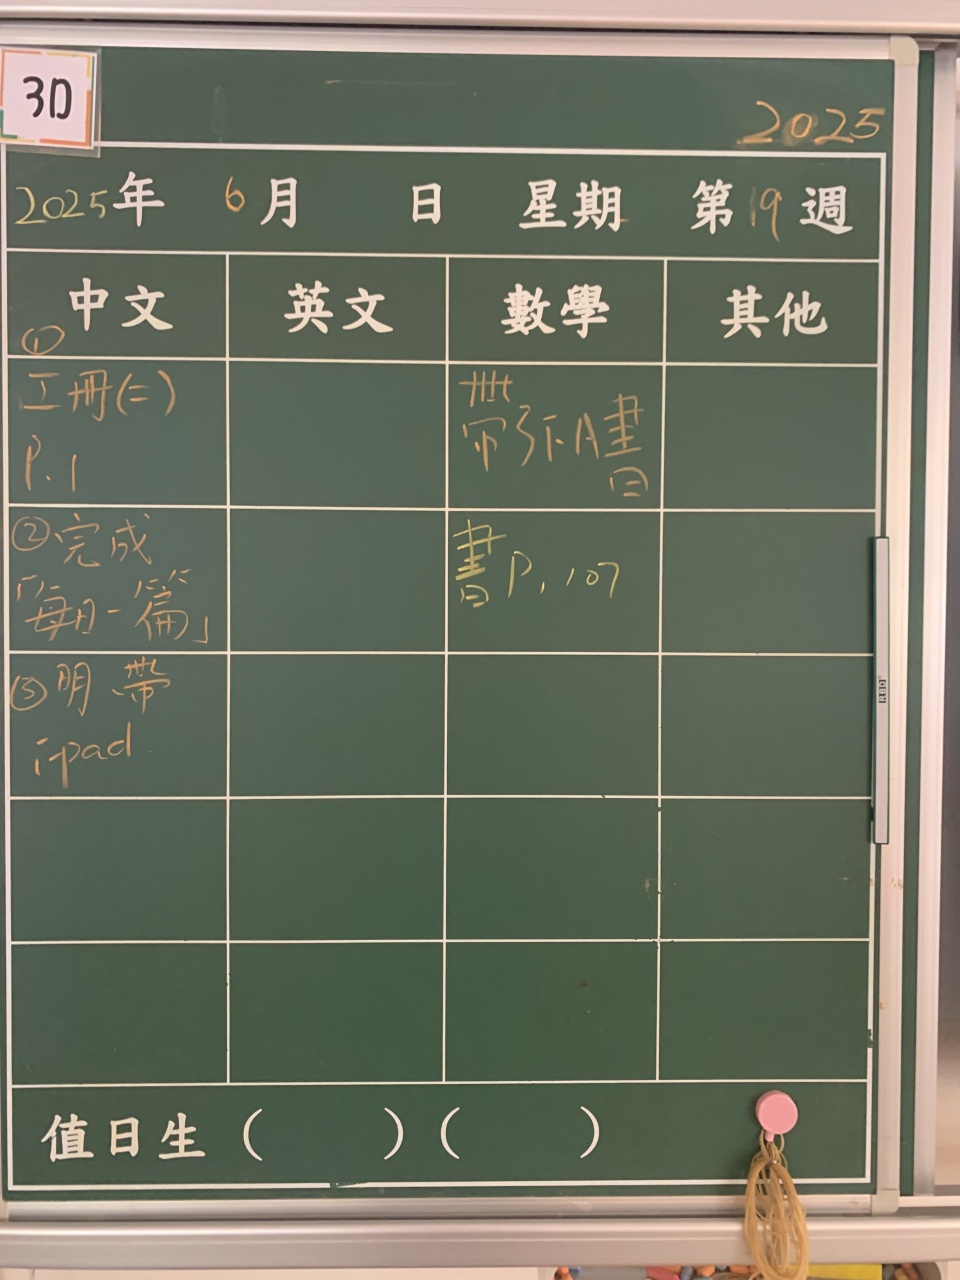 3D
2025
2025年 6月 日 星期 第19週
中文 英文 數學 其他
①
工冊(二)
P.1
帶3下A書
②完成
「每日一篇」
書P.107
③明帶
ipad
值日生 ( ) ( )
RBD